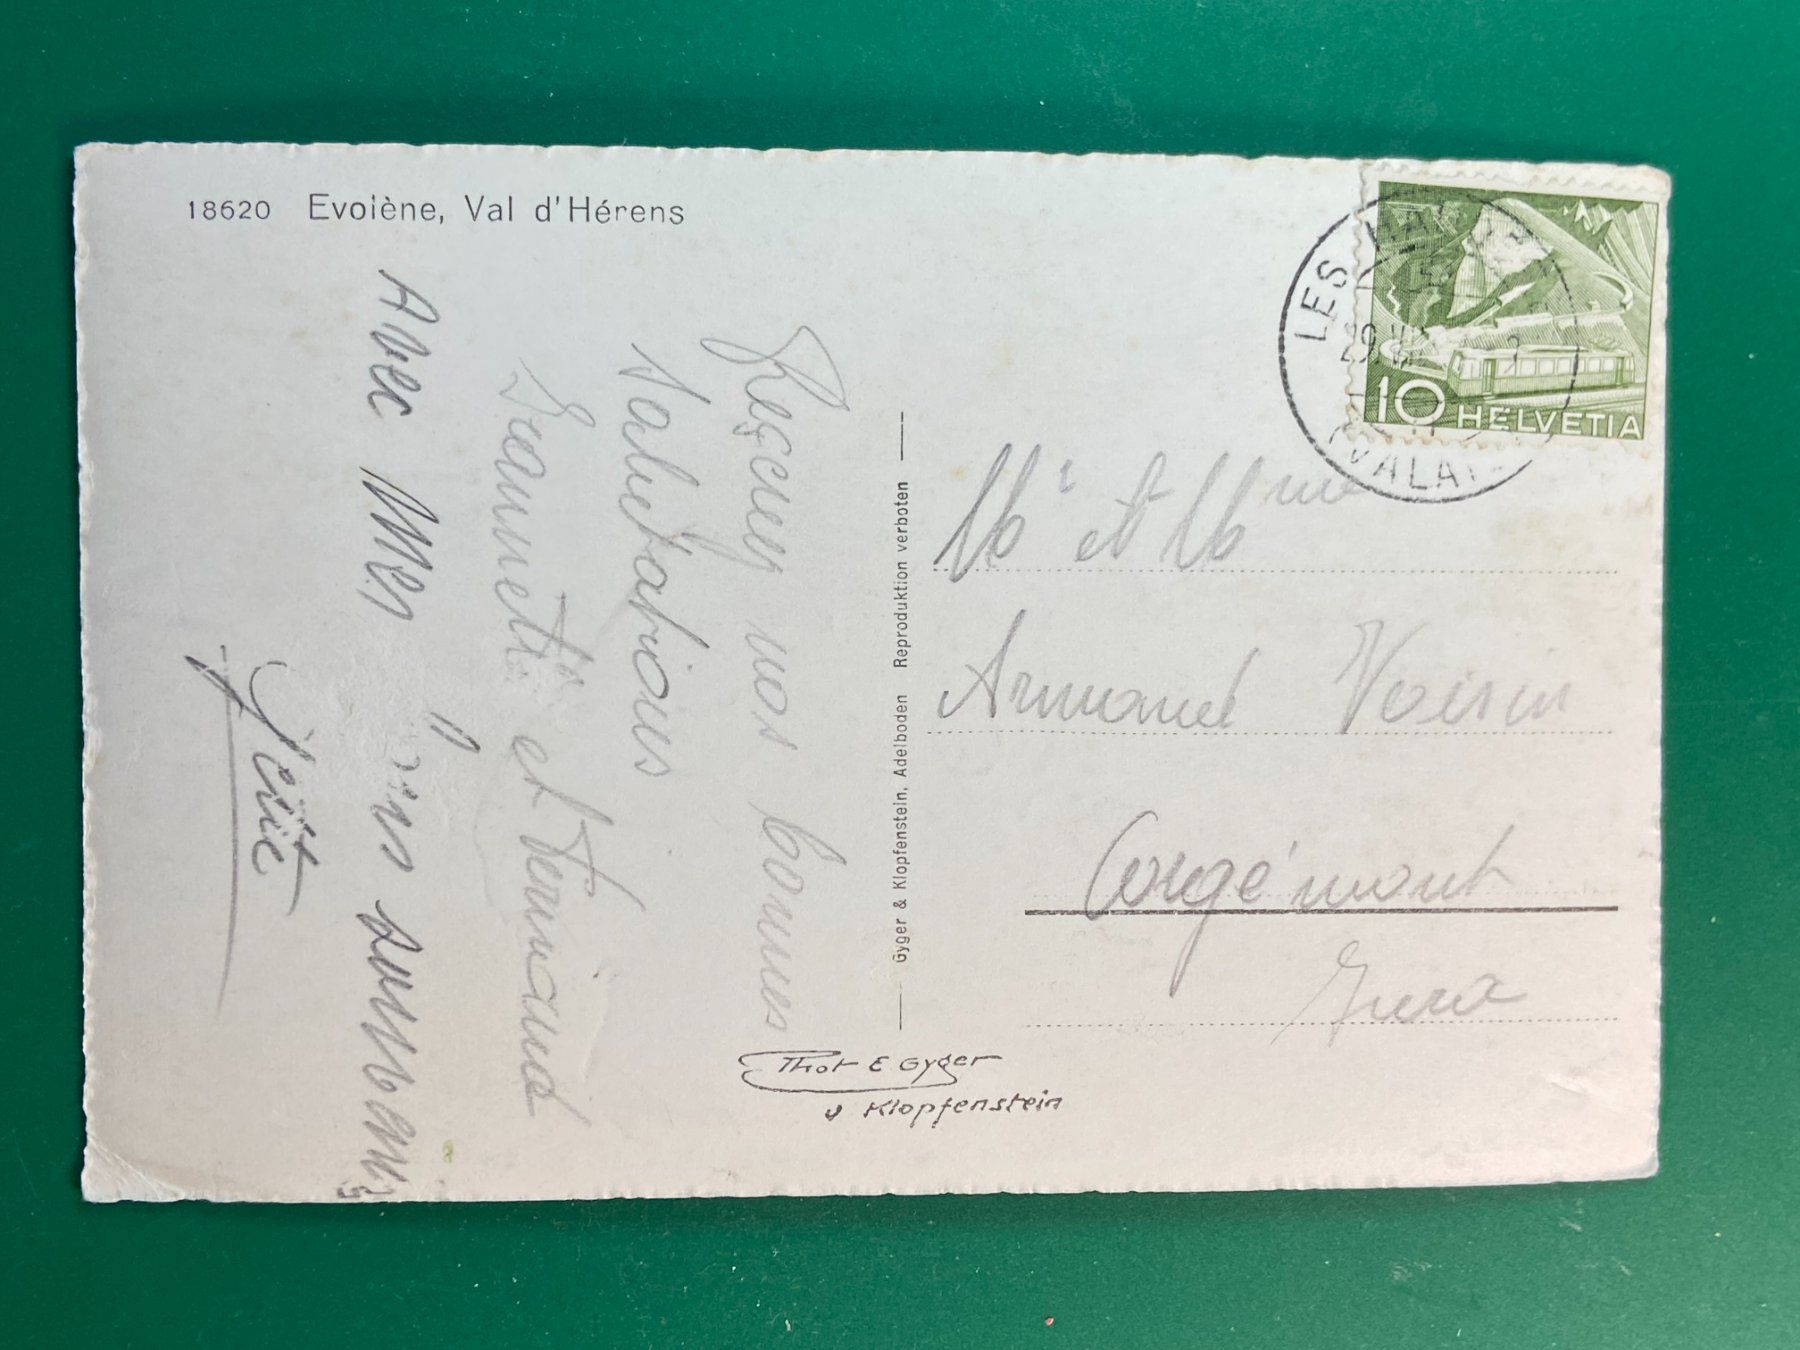 18620 Evolène, Val d'Hérens
Recevez nos bonnes
salutations
Jeannette et Fernand
Avec mes
souvenirs
Gyger & Klopfenstein, Adelboden Reproduktion verboten
Phot E Gyger
u Klopfenstein
LES
VALAI
10 HELVETIA
Mr et Mme
Armand Voisin
Corgémont
Jura